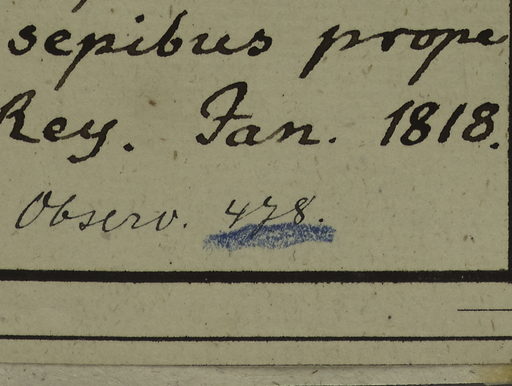 sepibus prope
Rey. Jan. 1818.
Observ. 478.